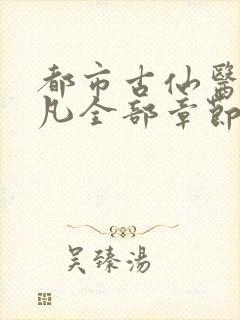 都市古仙醫
凡全部章節
吴臻湯